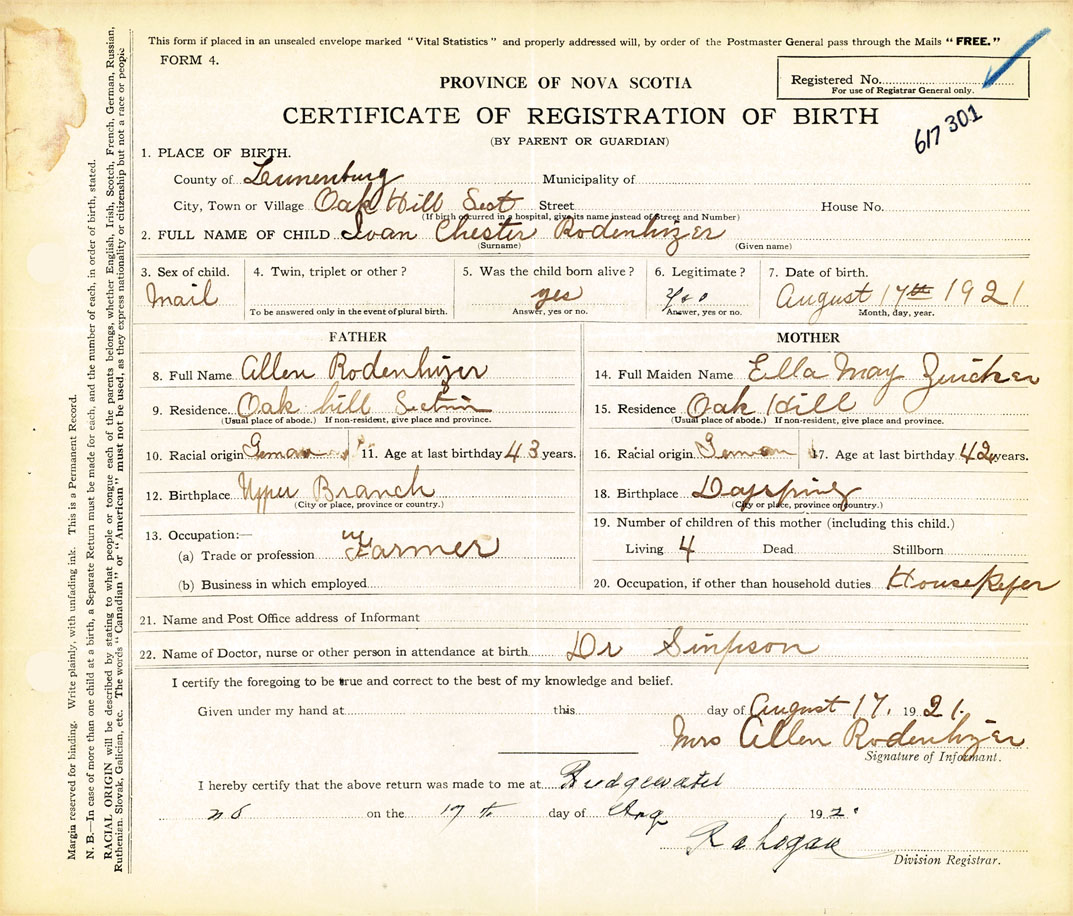 This form if placed in an unsealed envelope marked "Vital Statistics" and properly addressed will, by order of the Postmaster General pass through the Mails "FREE."
FORM 4.
Registered No.
For use of Registrar General only.
PROVINCE OF NOVA SCOTIA
CERTIFICATE OF REGISTRATION OF BIRTH
617 301
(BY PARENT OR GUARDIAN)
1. PLACE OF BIRTH.
County of Lunenburg Municipality of
City, Town or Village Oak Hill Sect Street House No.
(If birth occurred in a hospital, give its name instead of Street and Number)
2. FULL NAME OF CHILD Ivan Chester Rodenhizer
(Surname) (Given name)
3. Sex of child. 4. Twin, triplet or other? 5. Was the child born alive? 6. Legitimate? 7. Date of birth.
Mail yes yes August 17th 1921
To be answered only in the event of plural birth. Answer, yes or no. Answer, yes or no. Month, day, year.
FATHER MOTHER
8. Full Name Allen Rodenhizer 14. Full Maiden Name Ella May Zwicker
9. Residence Oak hill Section 15. Residence Oak Hill
(Usual place of abode.) If non-resident, give place and province. (Usual place of abode.) If non-resident, give place and province.
10. Racial origin German 11. Age at last birthday 43 years. 16. Racial origin German 17. Age at last birthday 42 years.
12. Birthplace Upper Branch 18. Birthplace Dayspring
(City or place, province or country.) (City or place, province or country.)
13. Occupation:— 19. Number of children of this mother (including this child.)
(a) Trade or profession Farmer Living 4 Dead Stillborn
(b) Business in which employed 20. Occupation, if other than household duties HouseKefer
21. Name and Post Office address of Informant
22. Name of Doctor, nurse or other person in attendance at birth Dr Simpson
I certify the foregoing to be true and correct to the best of my knowledge and belief.
Given under my hand at this day of August 17, 1921.
Mrs Allen Rodenhizer
Signature of Informant.
I hereby certify that the above return was made to me at Bridgewater
N S on the 17 th day of Aug 192
R a Logan
Division Registrar.
Margin reserved for binding. Write plainly, with unfading ink. This is a Permanent Record.
N. B.—In case of more than one child at a birth, a Separate Return must be made for each, and the number of each, in order of birth, stated.
RACIAL ORIGIN will be described by stating to what people or tongue each of the parents belongs, whether English, Irish, Scotch, French, German, Russian,
Ruthenian, Slovak, Galician, etc. The words "Canadian" or "American" must not be used, as they express nationality or citizenship but not a race or people